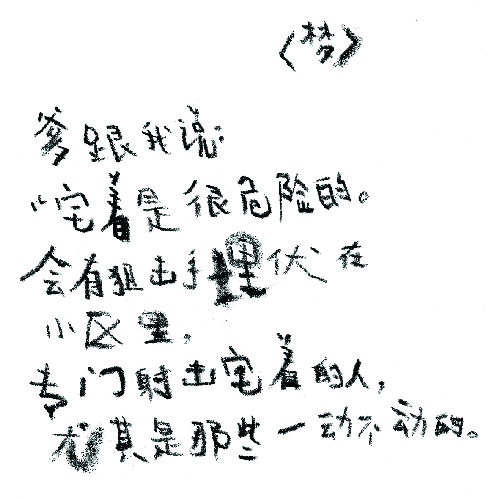 《梦》
爹跟我说:
“宅着是很危险的。
会有狙击手埋伏在
小区里,
专门射击宅着的人,
尤其是那些一动不动的。